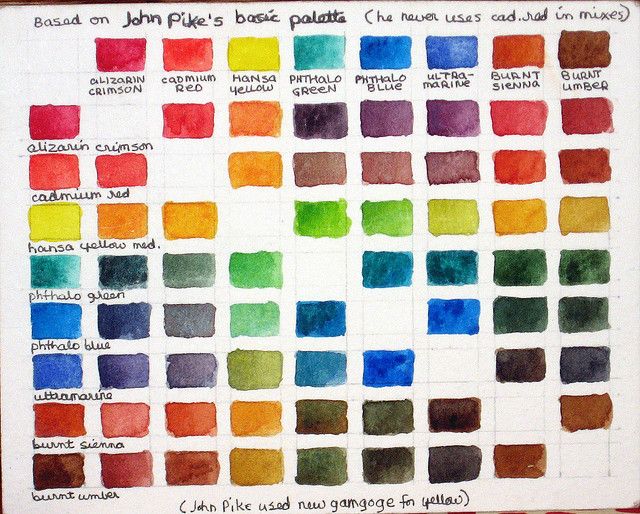 Based on John Pike's basic palette (he never uses cad. red in mixes)
ALIZARIN CRIMSON
CADMIUM RED
HANSA YELLOW
PHTHALO GREEN
PHTHALO BLUE
ULTRA-MARINE
BURNT SIENNA
BURNT UMBER
alizarin crimson
cadmium red
hansa yellow med.
phthalo green
phthalo blue
ultramarine
burnt sienna
burnt umber
(John Pike used new gamgoge for yellow)